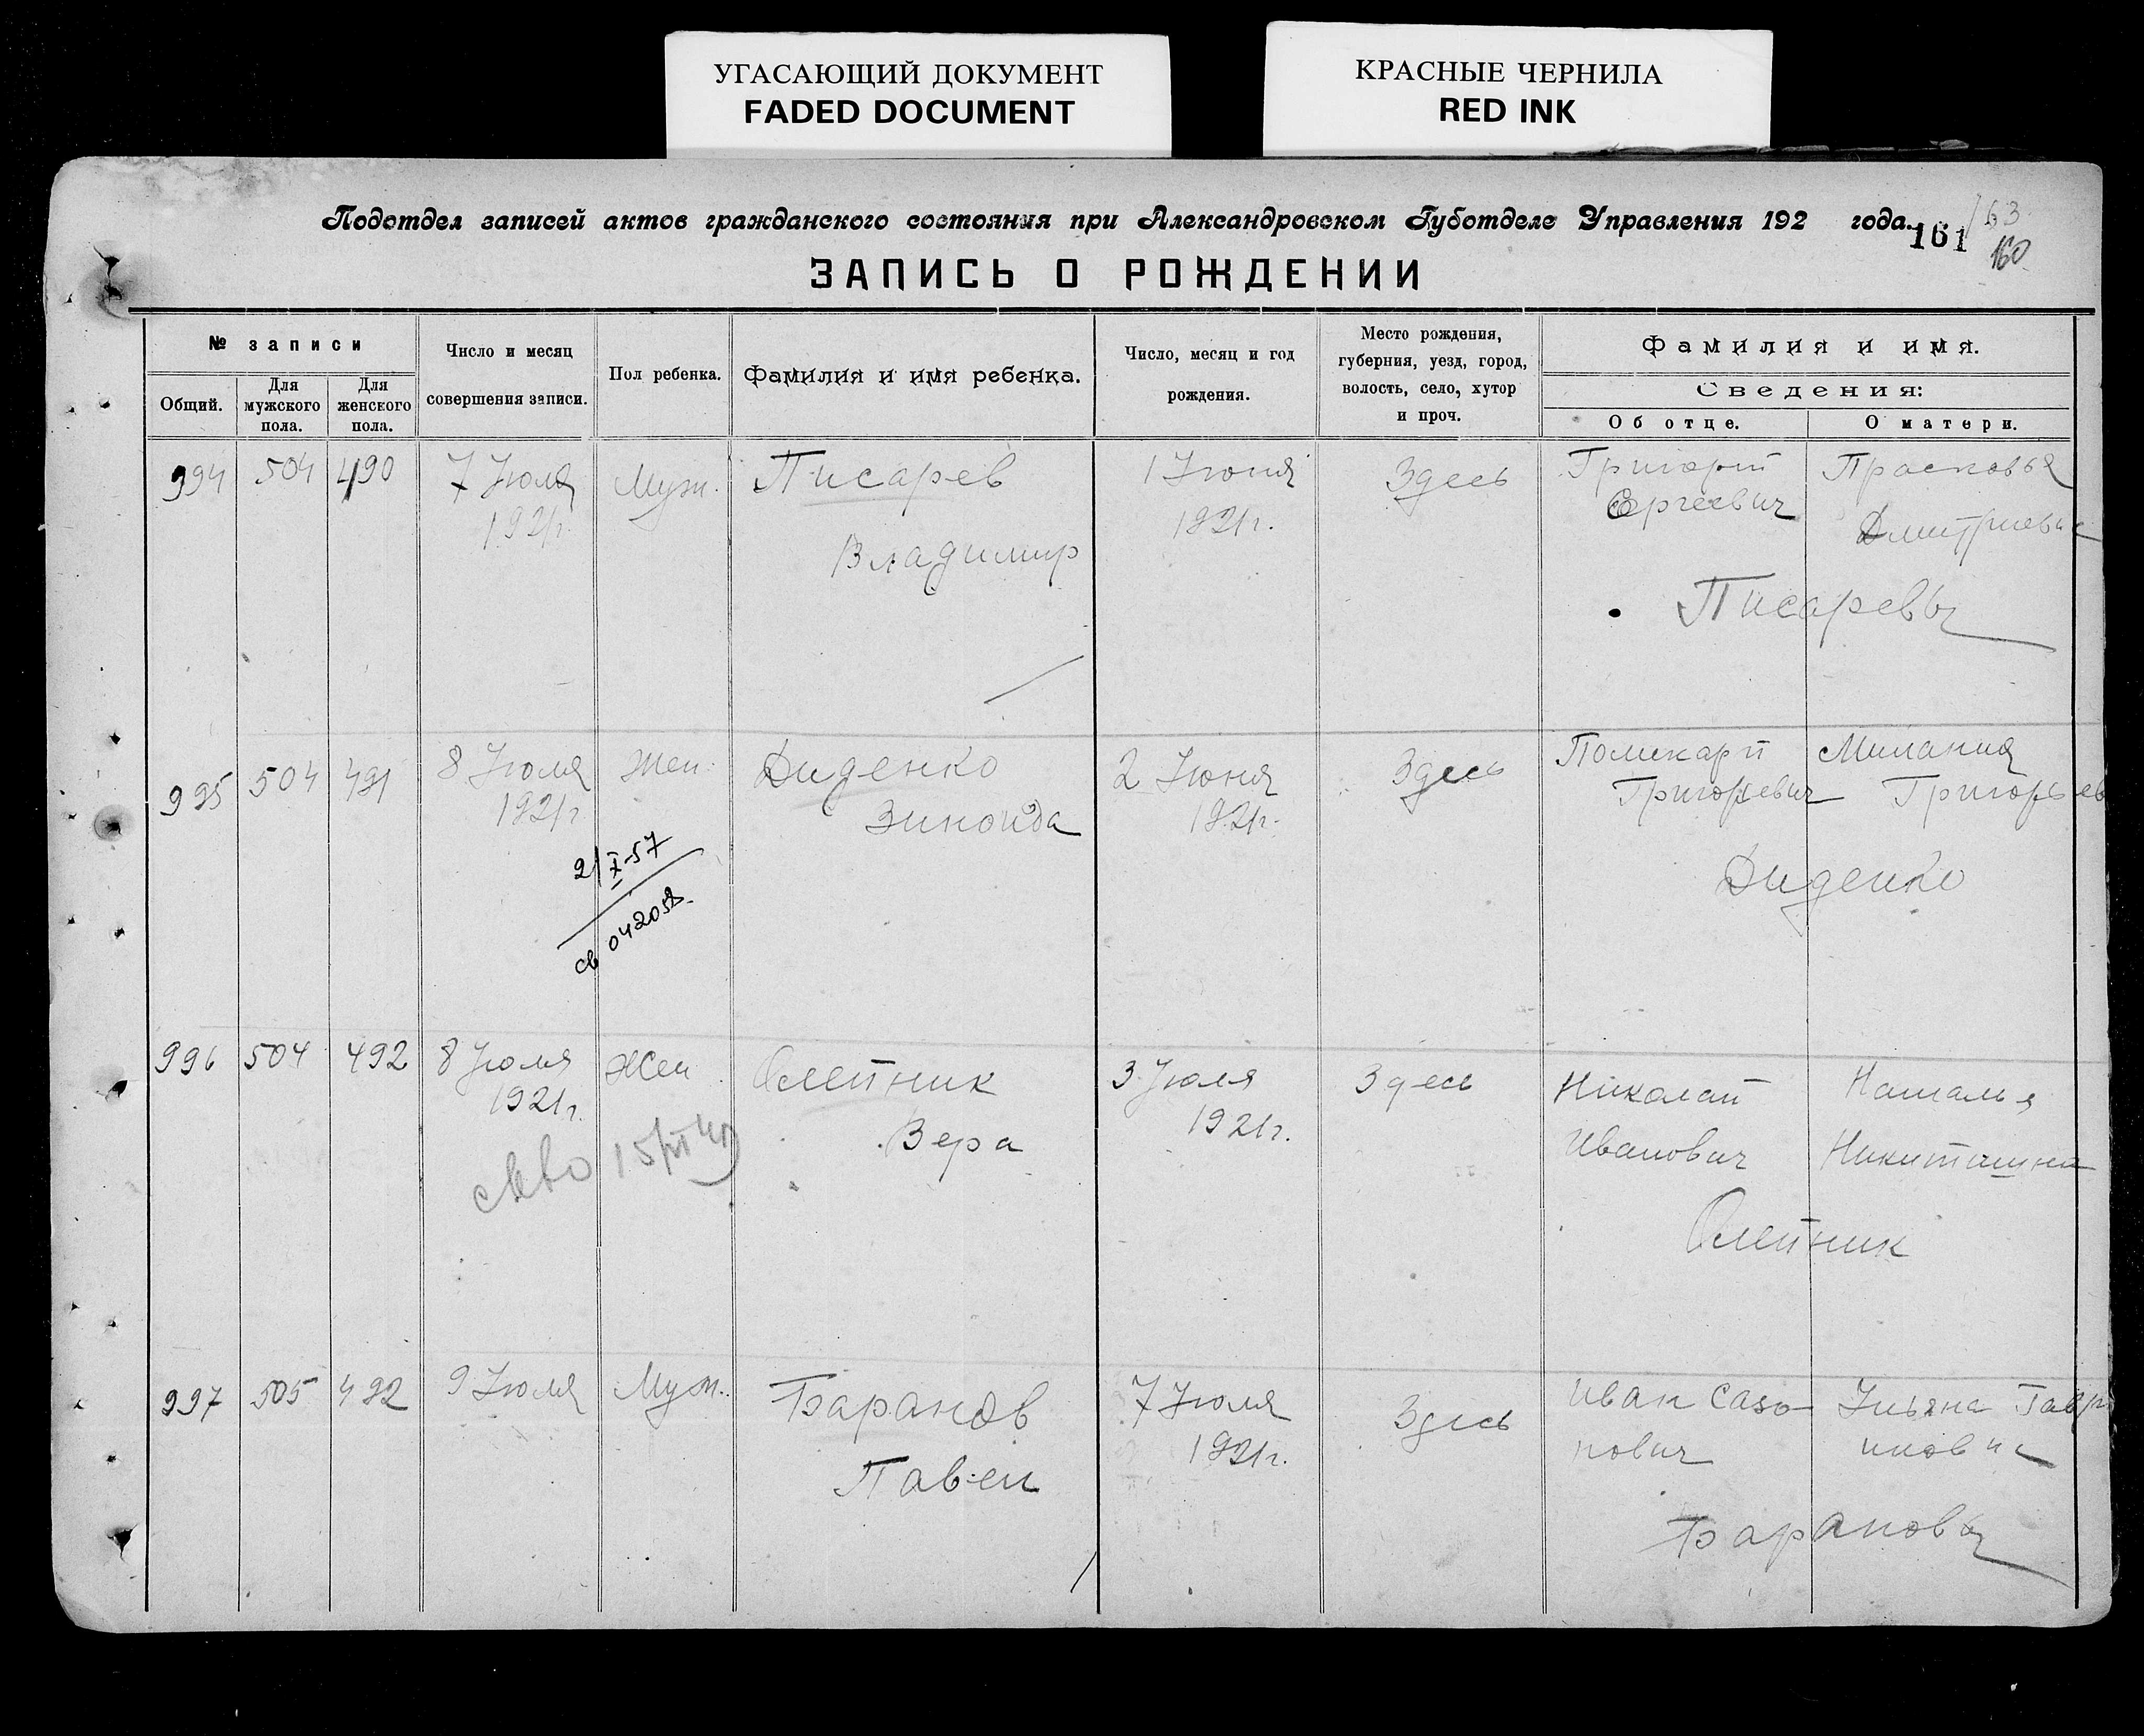 УГАСАЮЩИЙ ДОКУМЕНТ
FADED DOCUMENT
КРАСНЫЕ ЧЕРНИЛА
RED INK
Подотдел записей актов гражданского состояния при Александровском Губотделе Управления 192 года.
161
163
160
ЗАПИСЬ О РОЖДЕНИИ
№ записи
Общий.
Для мужского пола.
Для женского пола.
Число и месяц совершения записи.
Пол ребенка.
Фамилия и имя ребенка.
Число, месяц и год рождения.
Место рождения, губерния, уезд, город, волость, село, хутор и проч.
Фамилия и имя.
Сведения:
Об отце.
О матери.
994 504 490 7 Июля Муж. Писарев 1 Июня Здесь Григорий Прасковья
1921г. Владимир 1921г. Сергеевич Дмитриевна
Писаревы
995 504 491 8 Июля Жен. Диденко 2 Июня Здесь Поликарп Милания
1921г Зиноида 1921г. Григорьевич Григорьев
2/X-57
св 042058
Диденко
996 504 492 8 Июля Жен. Олейник 3 Июля Здесь Николай Наталья
1921г. Вера 1921г. Иванович Никитишна
15/VI 40
Олейник
997 505 492 9 Июля Муж. Баранов 7 Июля Здесь Иван Сазо- Ульяна Гавр
Павел 1921г. нович иловна
Барановы